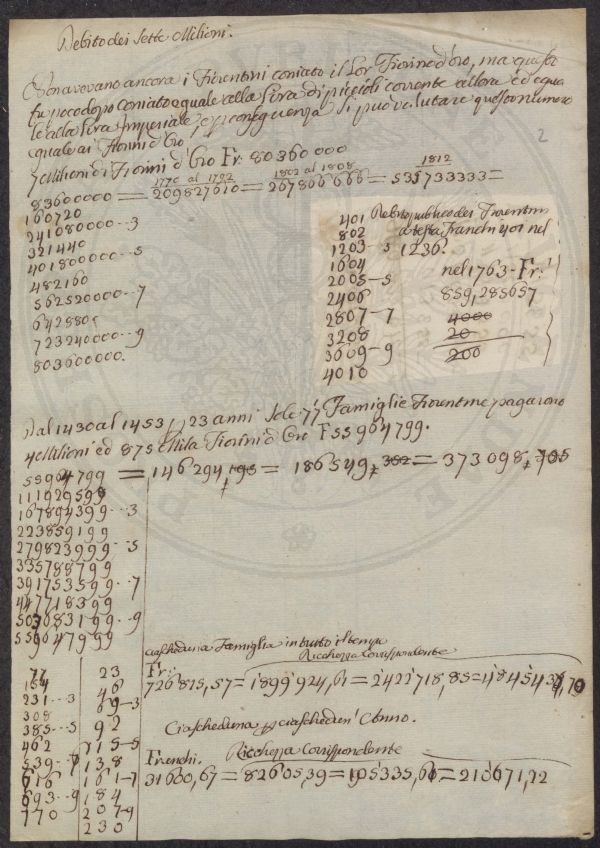 Debito dei Sette Milioni.
Non avevano ancora i Fiorentini coniato il Lor Fiorino d'oro, ma questo
fu poco dopo coniato eguale alla Lira di piccioli corrente allora ed egua
le alla Lira Imperiale, e p conseguenza si può valutare questo numero
eguale ai Fiorini d'Oro
2
7 Milioni di Fiorini d'Oro Fr: 80360000
1770 al 1792 1802 al 1808 1812
83600000 = 209827610 = 267866666 = 535733333 =
160720
241080000...3
321440
401800000...5
482160
562520000...7
642880
723240000...9
803600000.
401
802
1203-3
1604
2005-5
2406
2807-7
3208
3609-9
4010
Debito publico dei Fiorentini
a testa Franchi 401 nel
1236.
nel 1763-Fr:
859,285657
4000
20
200
Dal 1430 al 1453 p 23 anni sole 77 Famiglie Fiorentine pagarono
4 Milioni ed 875 Mila Fiorini d'Oro F 55964799.
55964799 = 146294,193 = 186549,382 = 373098,765
111929598
167894399...3
223859199
279823999...5
335788799
391753599...7
447718399
503683199...9
559647999
77
154
231...3
308
385...5
462
539...7
616
693...9
770
23
46
69-3
92
115-5
138
161-7
184
207-9
230
ciascheduna Famiglia in tutto il tempo
Ricchezza Corrispondente
Fr:
726815,57 = 1'899'924,61 = 2422'718,85 = 4'845'43,70
Ciascheduna p ciaschedun' Anno.
Franchi. Ricchezza Corrispondente
31600,67 = 82605,39 = 105335,61 = 210'671,22